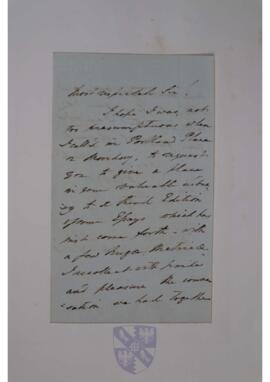 Most respected Sir!
I hope I was not
too presumptuous when
I call'd in Portland Place
on Monday, to request
you to give a place
in your valuable
to a Second Edition
of some Essays which has
just come forth with
a few Rugged
I recollect with pride
and pleasure the conver
sation we had together